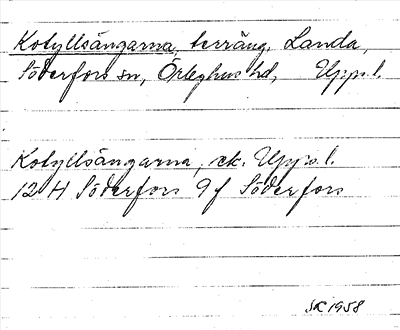 Kotyllsängarna, terräng, Landa,
Söderfors sn, Örbyhus hd, Upps. l.
Kotyllsängarna, ek. Upps. l.
12 H Söderfors 9 f Söderfors
SK 1958